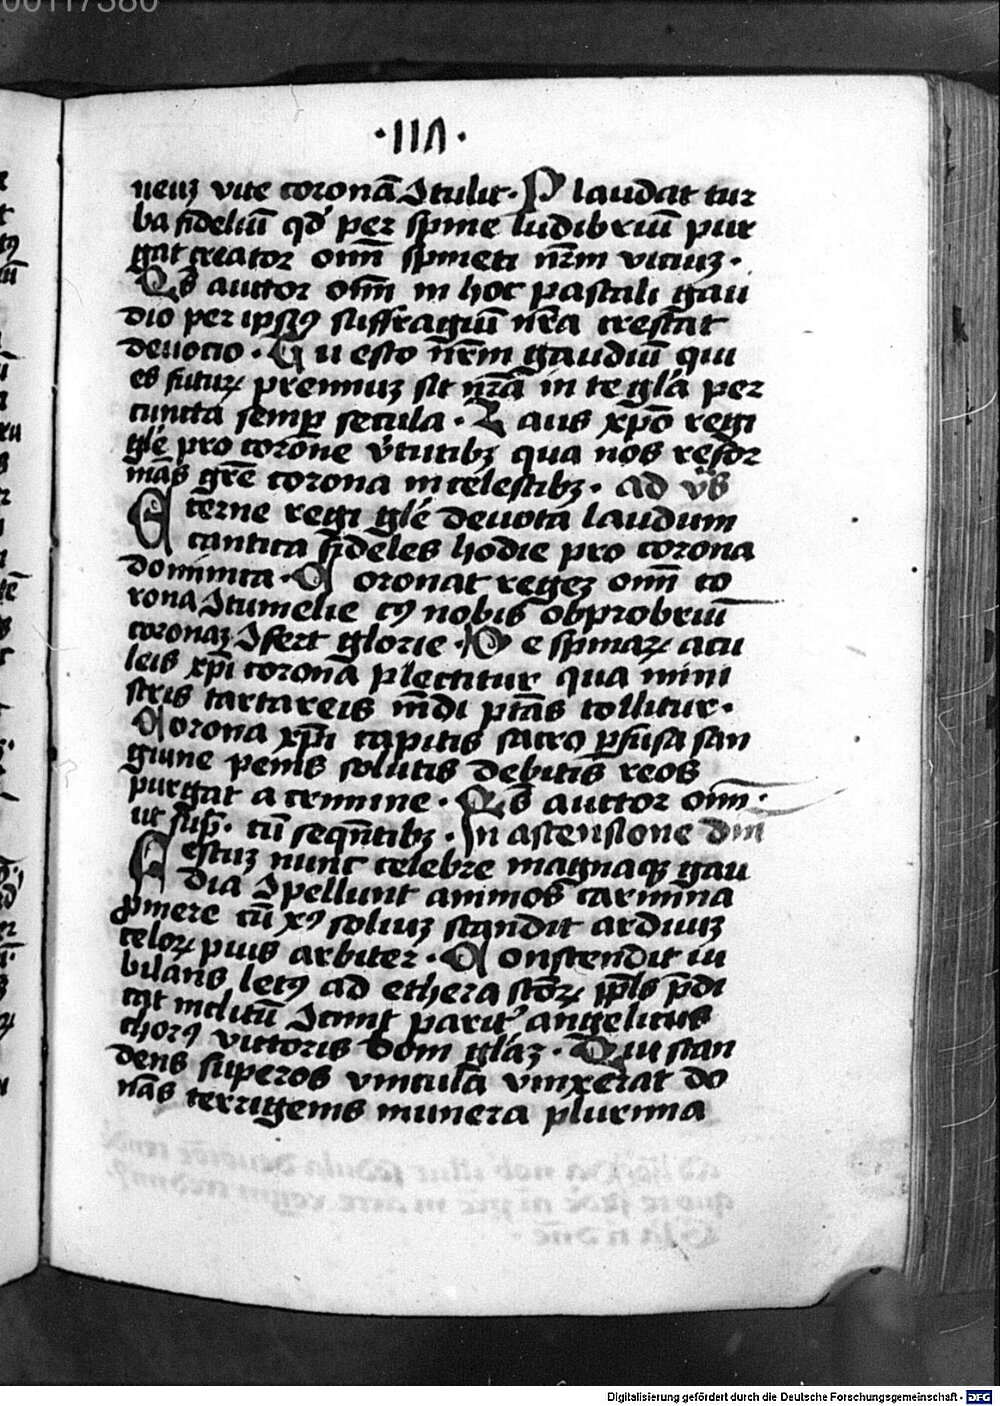 00117380
·117·
neuʒ vite coronā ꝯtulit · P laudat tur
ba fideliū qd̕ per spine ludibriū pur
gat creator om̄ spineti nr̄m viciuʒ ·
Qs̄ auctor om̄ in hoc pascali gau
dio per ipsiꝰ suffragiū nr̄a crescat
deuocio · Tu esto nr̄m gaudiū qui
es futurꝝ premiuʒ sit nr̄a in te gl̄a per
cuncta semꝑ secula · Laus xp̄o regi
gl̄e pro corone v̓tutibʒ qua nos refor
mās gr̄e corona in celestibʒ · ad vs̄
Eterne regi gl̄e deuota laudum
cantica fideles hodie pro corona
dominica · Coronat regeʒ om̄ co
rona ꝯtumelie cꝰ nobis obprobriū
coronaʒ ꝯfert glorie · De spinaꝝ acu
leis xp̄i corona plectitur qua mini
stris tartareis mūdi ptās tollitur ·
Corona xp̄i capitis sacro ꝑfusa san
guine penis solutis debitis reos
purgat a crimine · Qs̄ auctor om̄ ·
ut sup̄ · cū seqn̄tibʒ · In ascensione dn̄i
Festuʒ nunc celebre magnaqʒ gau
dia ꝯpellunt animos carmina
ꝓmere cū xꝰ soliuʒ scandit arduuʒ
celoꝝ pius arbiter · Conscendit iu
bilans letꝰ ad ethera sc̄oꝝ pp̄ls p̄di
cat inclitū ꝯcinit parit̓ angelicus
chorꝰ victoris boni gl̄aʒ · Qui scan
dens superos vincula vinxerat do
nās terrigenis munera plurima
Digitalisierung gefördert durch die Deutsche Forschungsgemeinschaft - DFG